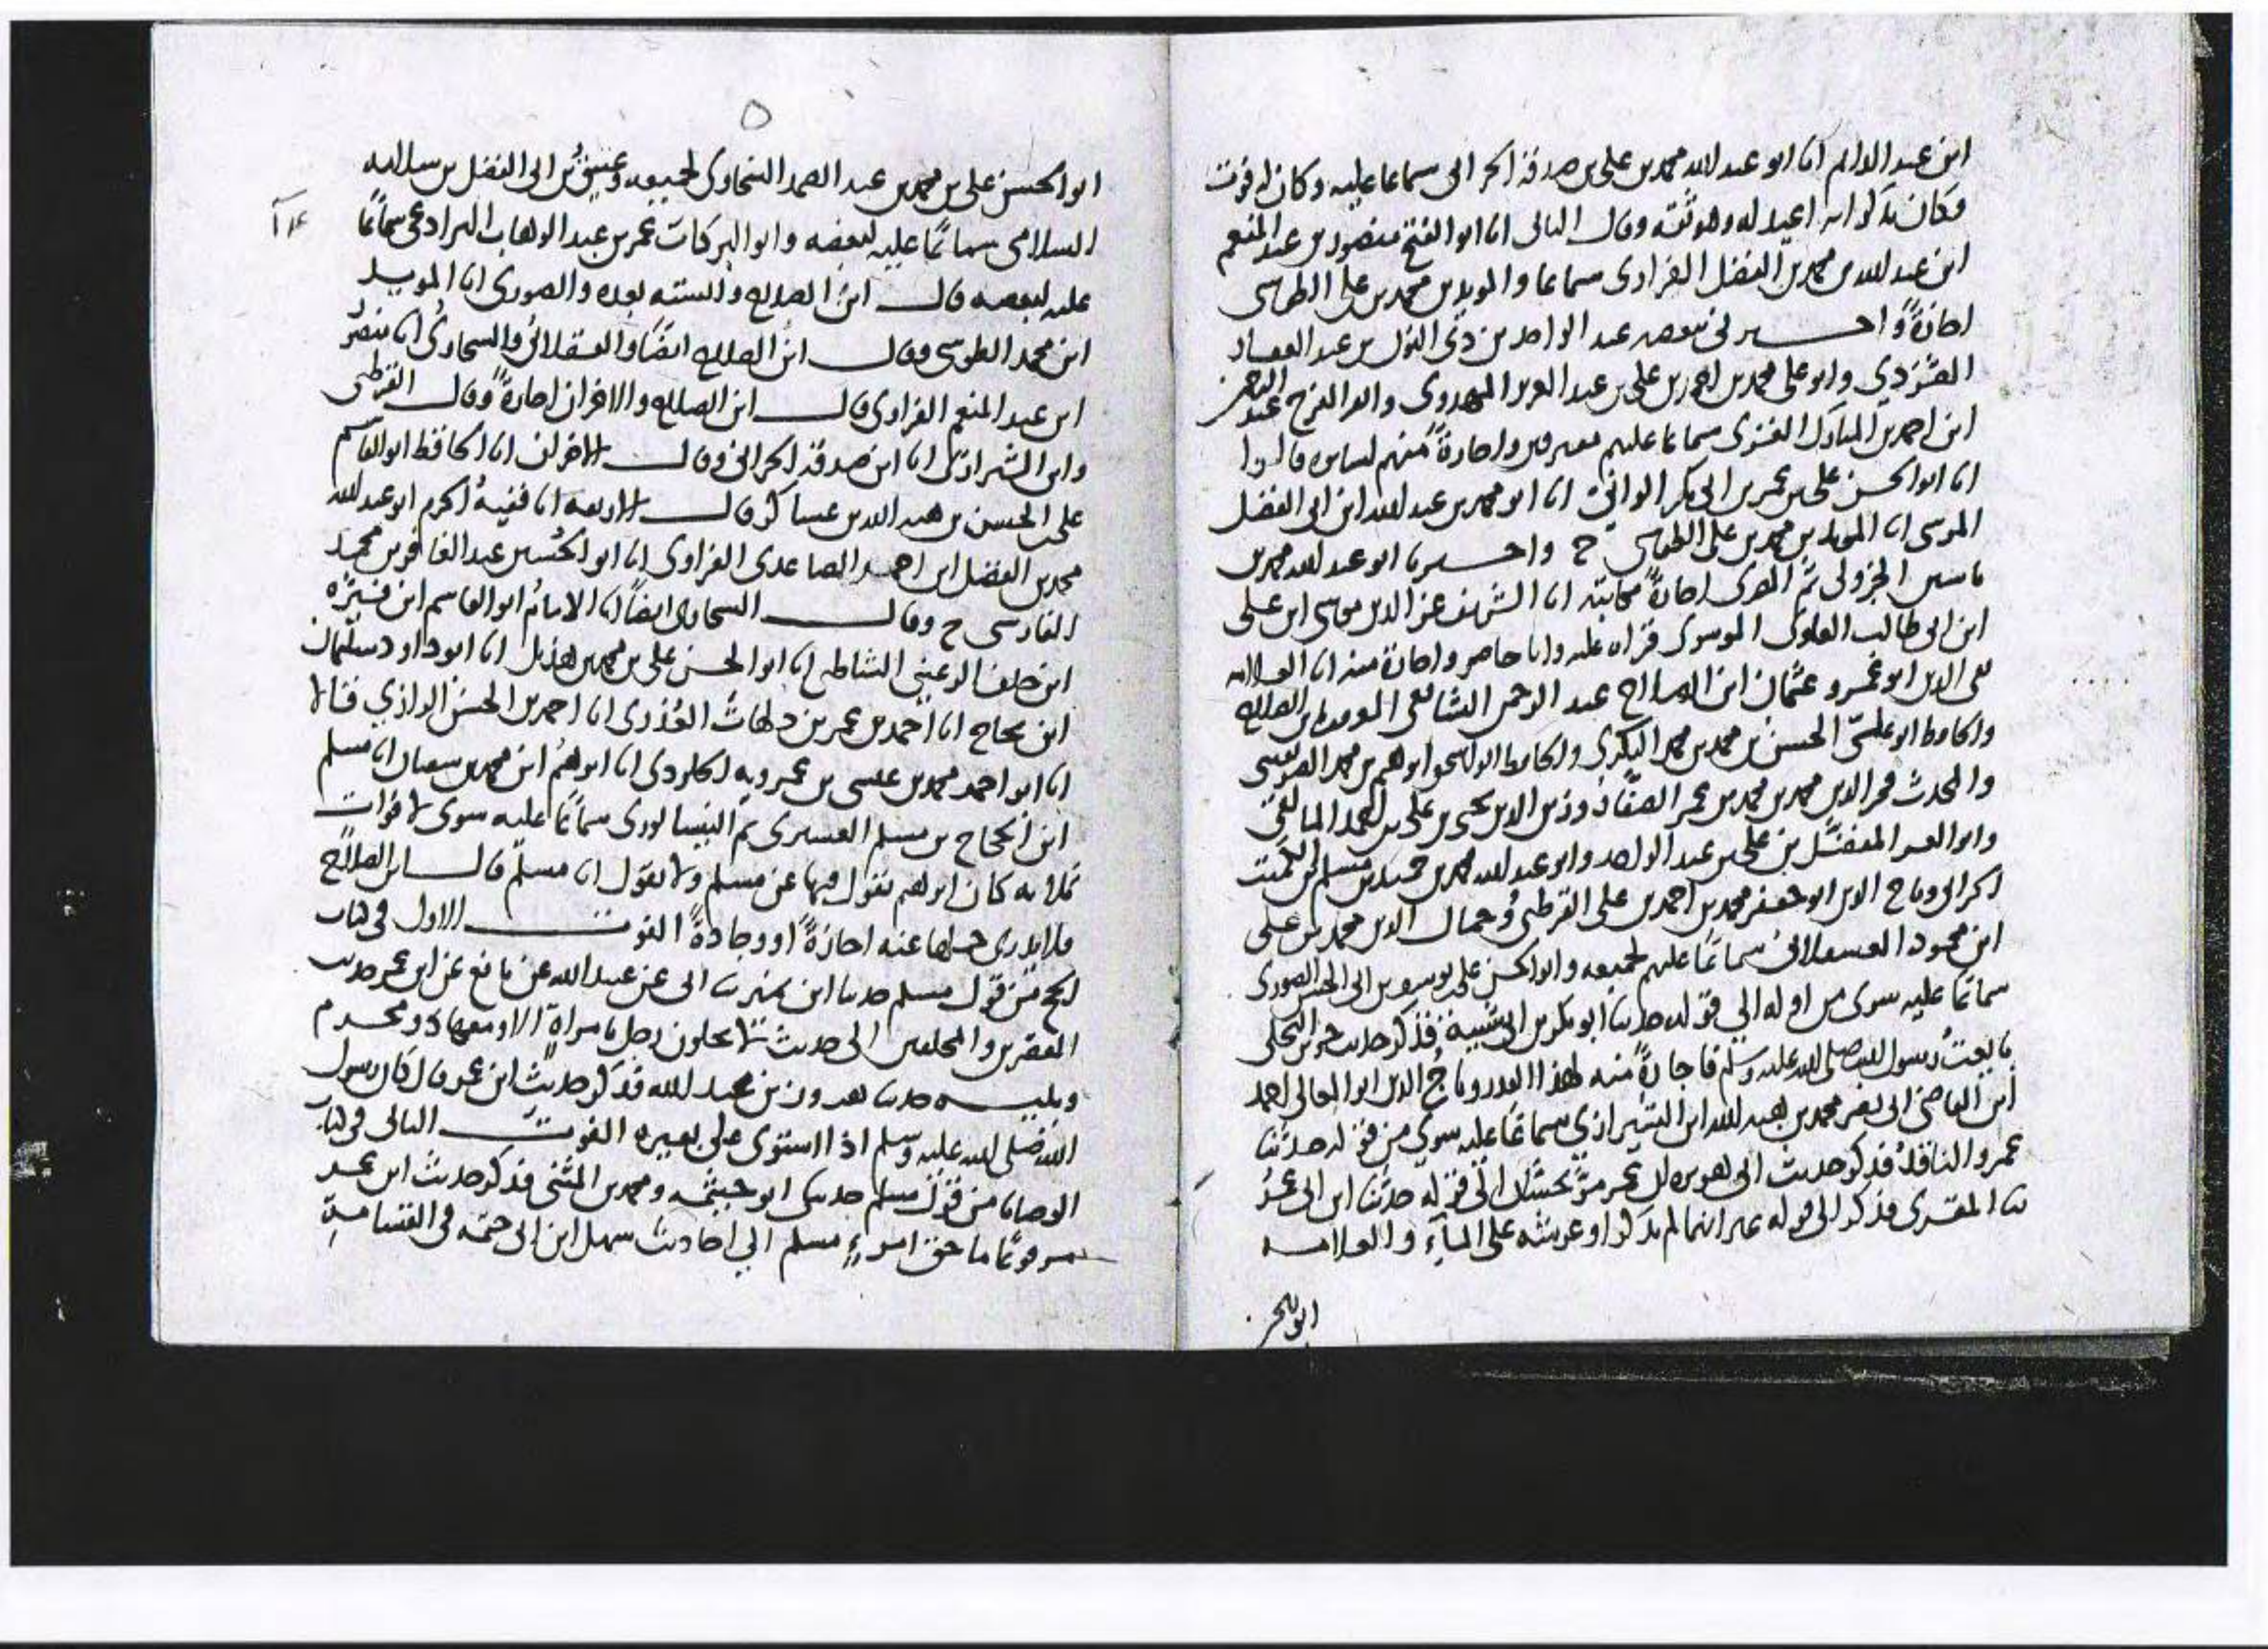 ابن عبد الدايم انا ابو عبد الله محمد بن على بن صدقة الحرانى سماعا عليه وكان له فوت
فكان يذكر انه اعيد له وهو ثقه وقال التالى انا ابو الفتح منصور بن عبد المنعم
ابن عبد الله بن محمد بن الفضل الفراوى سماعا والمويد بن محمد بن على الطوسى
اجازةً واخبرنى ببعضه عبد الواحد بن ذى النون بن عبد الغفار
وابو على محمد بن احمد بن على بن عبد العزيز المهدوى وابو الفرج عبد الرحمن
ابن احمد بن المبارك الغزى سماعا عليهم مفرقين واجازةً منهم لسايره قالوا
انا ابو الحسن على بن عمر بن ابى بكر الوانى انا ابو محمد بن عبد الله ابن ابى الفضل
المرسى انا المويد بن محمد بن على الطوسى ح واخبرنا ابو عبد الله محمد بن
ياسين الجزولى ثم المصرى اجازةً مكاتبة انا الشريف عز الدين موسى ابن على
ابن ابى طالب العلوى الموسوى قراه عليه وانا حاضر واجازة منه انا العلامه
تقى الدين ابو عمرو عثمان ابن الصلاح عبد الرحمن الشافعى
والحافظ ابو على الحسن بن محمد بن محمد البكرى والحافظ ابو اسحق ابراهيم بن محمد الصريفينى
والمحدث فخر الدين محمد بن محمد بن عمر الصفار وزين الدين يحيى بن على بن احمد المالقى
وابو العز المفضل بن على بن عبد الواحد وابو عبد الله محمد بن حميد بن مسلم بن الكميت
الحرانى وتاج الدين ابو جعفر محمد بن احمد بن على القرطبى وجمال الدين محمد بن على
ابن محمود العسقلانى سماعًا عليهم لجميعه وابو الحسن على بن يوسف بن ابى الحسن الصورى
سماعًا عليه سوى من اوله الى قوله حدثنا ابو بكر بن ابى شيبة فذكر حديث جرير البجلى
بايعت رسول الله صلى الله عليه وسلم فاجازةً منه لهذا القدر وتاج الدين ابو المعالى احمد
ابن القاضى ابى نصر محمد بن هبة الله ابن الشيرازى سماعًا عليه سوى من قوله حدثنا
عمرو الناقد فذكر حديث ابى هريره الى قوله حدثنا ابن ابى عمر
ثنا المقرى فذكر الى قوله غير انهما لم يذكرا وعرشه على المآء والعلامه
ابو الحسن
٥
ابو الحسن على بن محمد بن عبد الصمد السخاوى لجميعه وعتيق بن ابى الفضل بن سلامه
السلامى سماعًا عليه لبعضه وابو البركات عمر بن عبد الوهاب البرادعى سماعًا
عليه لبعضه قال ابن الصلاح والستة بعده والصورى انا المويد
ابن محمد الطوسى وقال ابن الصلاح ايضًا والعسقلانى والسخاوى انا منصور
ابن عبد المنعم الفراوى قال ابن الصلاح والاخران اجازةً وقال القرطبى
وابن الشيرازى انا ابن صدقة الحرانى وقال الاخران انا الحافظ ابو القاسم
على بن الحسن بن هبة الله بن عساكر قال الاربعه انا فقيه الحرم ابو عبد الله
محمد بن الفضل ابن احمد الصاعدى الفراوى انا ابو الحسين عبد الغافر بن محمد
الفارسى ح وقال السخاوى ايضًا انا الامام ابو القاسم ابن فيرّه
ابن خلف الرعينى الشاطبى انا ابو الحسن على بن محمد بن هذيل انا ابو داود سليمان
ابن نجاح انا احمد بن عمر بن دلهاث العذرى انا احمد بن الحسن الرازى قالا
انا ابو احمد محمد بن عيسى بن عمرويه الجلودى انا ابراهيم ابن محمد بن سفيان انا مسلم
ابن الحجاج بن مسلم القشيرى ثم النيسابورى سماعًا عليه سوى افوات
ثلاثه كان ابراهيم يقول فيها عن مسلم ولا يقول انا مسلم قال ابن الصلاح
فلا يدرى حملها عنه اجازةً او وجادةً الفوت الاول فى كتاب
الحج من قول مسلم حدثنا ابن نمير ثنا ابى عن عبيد الله عن نافع عن ابن عمر حديث
المقصرين والمحلقين الى حديث لا يخلون رجل بامراة الا ومعها ذو محرم
ويليه حدثنا هرون بن عبد الله فذكر حديث ابن عمر قال كان رسول
الله صلى الله عليه وسلم اذا استوى على بعيره الفوت التالى فى كتاب
الوصايا من قول مسلم حدثنى ابو خيثمه ومحمد بن المثنى فذكر حديث ابن عمر
مرفوعًا ما حق امرءٍ مسلم الى احاديث سهل ابن ابى حثمه فى القسامة